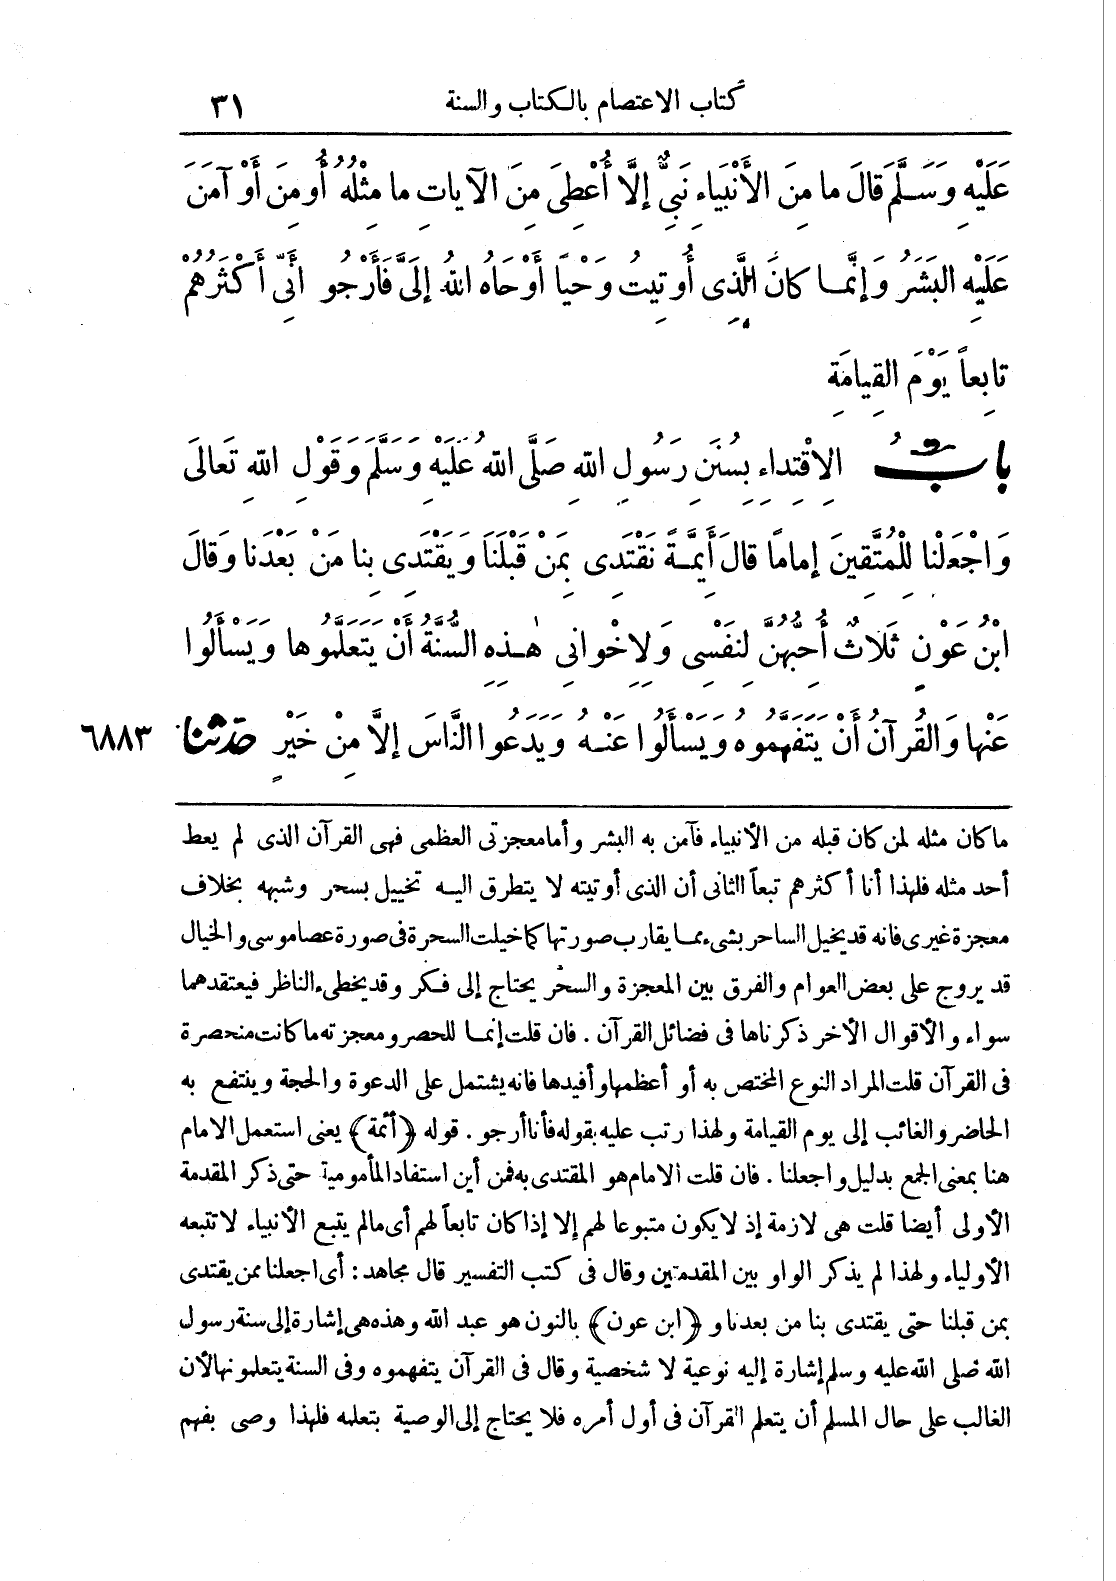 كتاب الاعتصام بالكتاب والسنة ٣١
عَلَيْهِ وَسَلَّمَ قَالَ ما مِنَ الأَنْبِيَاءِ نَبِيٌّ إِلَّا أُعْطِىَ مِنَ الآيَاتِ ما مِثْلُهُ أُومِنَ أَوْ آمَنَ
عَلَيْهِ البَشَرُ وَإِنَّمَا كَانَ الَّذِى أُوتِيتُ وَحْيًا أَوْحَاهُ اللهُ إِلَىَّ فَأَرْجُو أَنِّى أَكْثَرُهُمْ
تابِعاً يَوْمَ القِيامَةِ
بابُ الِاقْتِداءِ بِسُنَنِ رَسُولِ اللهِ صَلَّى اللهُ عَلَيْهِ وَسَلَّمَ وَقَوْلِ اللهِ تَعَالَى
وَاجْعَلْنا لِلْمُتَّقِينَ إِمامًا قالَ أَيِمَّةً نَقْتَدِى بِمَنْ قَبْلَنَا وَيَقْتَدِى بِنا مَنْ بَعْدَنا وَقالَ
ابْنُ عَوْنٍ ثَلَاثٌ أُحِبُّهُنَّ لِنَفْسِى وَلِإِخْوانِى هٰذِهِ السُّنَّةُ أَنْ يَتَعَلَّمُوها وَيَسْأَلُوا
عَنْها وَالقُرْآنُ أَنْ يَتَفَهَّمُوهُ وَيَسْأَلُوا عَنْهُ وَيَدَعُوا النَّاسَ إِلَّا مِنْ خَيْرٍ حدثنا ٦٨٨٣
ما كان مثله لمن كان قبله من الأنبياء فآمن به البشر وأما معجزتى العظمى فهى القرآن الذى لم يعط
أحد مثله فلهذا أنا أكثرهم تبعاً الثانى أن الذى أوتيته لا يتطرق اليه تخييل بسحر وشبهه بخلاف
معجزة غيرى فانه قد يخيل الساحر بشىء مما يقارب صورتها كما خيلت السحرة فى صورة عصا موسى والخيال
قد يروج على بعض العوام والفرق بين المعجزة والسحر يحتاج إلى فكر وقد يخطىء الناظر فيعتقدهما
سواء والأقوال الأخر ذكرناها فى فضائل القرآن . فان قلت إنما للحصر ومعجزته ما كانت منحصرة
فى القرآن قلت المراد النوع المختص به أو أعظمها وأفيدها فانه يشتمل على الدعوة والحجة وينتفع به
الحاضر والغائب إلى يوم القيامة ولهذا رتب عليه بقوله فأنا أرجو . قوله ﴿أئمة﴾ يعنى استعمل الامام
هنا بمعنى الجمع بدليل واجعلنا . فان قلت الامام هو المقتدى به فمن أين استفاد المأمومية حتى ذكر المقدمة
الأولى أيضا قلت هى لازمة إذ لا يكون متبوعا لهم إلا إذا كان تابعاً لهم أى مالم يتبع الأنبياء لا تتبعه
الأولياء ولهذا لم يذكر الواو بين المقدمتين وقال فى كتب التفسير قال مجاهد : أى اجعلنا ممن يقتدى
بمن قبلنا حتى يقتدى بنا من بعدنا و ﴿ابن عون﴾ بالنون هو عبد الله وهذه هى إشارة إلى سنة رسول
الله صلى الله عليه وسلم إشارة إليه نوعية لا شخصية وقال فى القرآن يتفهموه وفى السنة يتعلمونها لأن
الغالب على حال المسلم أن يتعلم القرآن فى أول أمره فلا يحتاج إلى الوصية بتعلمه فلهذا وصى بفهم